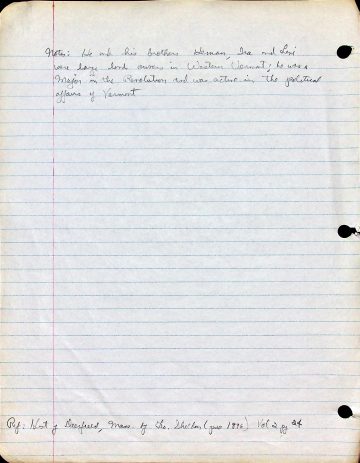 Notes: He and his brothers Heman, Ira and Levi
were large land owners in Western Vermont; he was a
Major in the Revolution and was active in the political
affairs of Vermont
Ref: Hist of Deerfield, Mass. by Geo. Sheldon (pub 1896) Vol 2 pg 24